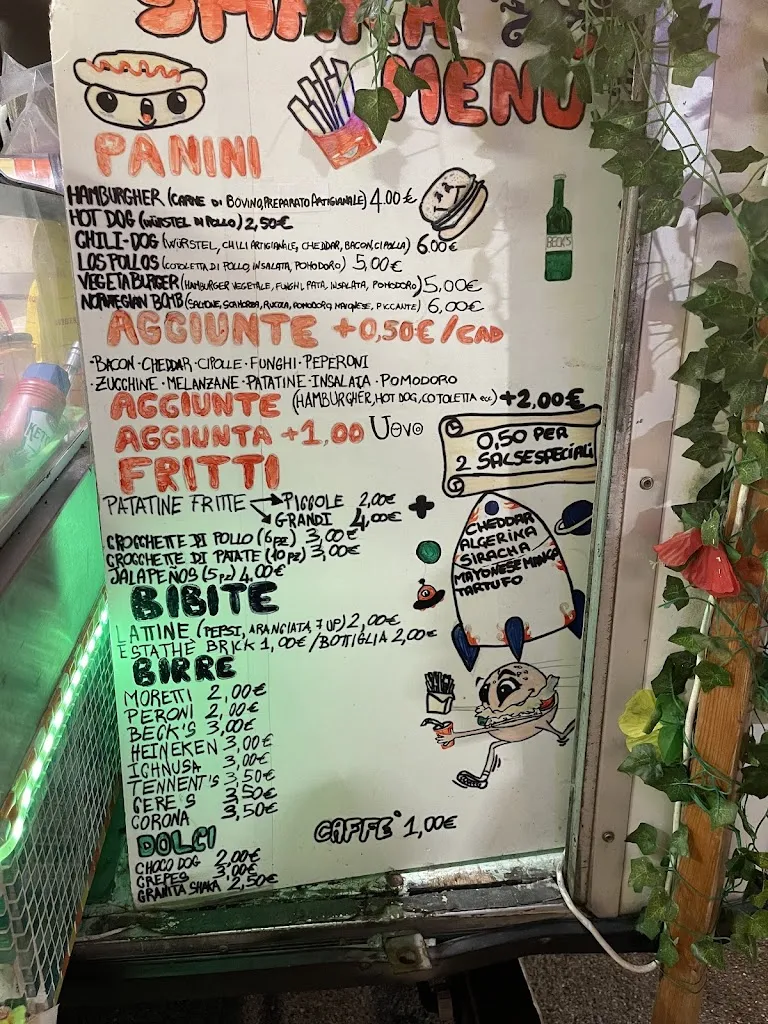 SHAKA
MENÙ
PANINI
HAMBURGHER (CARNE DI BOVINO, PREPARATO ARTIGIANALE) 4.00€
HOT DOG (WÜRSTEL DI POLLO) 2,50€
CHILI-DOG (WÜRSTEL, CHILI ARTIGIANALE, CHEDDAR, BACON, CIPOLLA) 6.00€
LOS POLLOS (COTOLETTA DI POLLO, INSALATA, POMODORO) 5,00€
VEGETABURGER (HAMBURGER VEGETALE, FUNGHI, PATA, INSALATA, POMODORO) 5,00€
NORWEGIAN BOMB (SALMONE, SCAMORZA, RUCOLA, POMODORO, MAIONESE, PICCANTE) 6,00€
BECK'S
AGGIUNTE +0,50€/CAD
·BACON·CHEDDAR·CIPOLLE·FUNGHI·PEPERONI
·ZUCCHINE·MELANZANE·PATATINE·INSALATA·POMODORO
AGGIUNTE (HAMBURGHER, HOT DOG, COTOLETTA ecc) +2,00€
AGGIUNTA +1,00 UOVO
0,50 PER
2 SALSE SPECIALI
FRITTI
PATATINE FRITTE PICCOLE 2,00€
GRANDI 4,00€ +
CHEDDAR
ALGERINA
SIRACHA
MAYONESE MANGO
TARTUFO
CROCCHETTE DI POLLO (6 pz) 3,00€
CROCCHETTE DI PATATE (10 pz) 3,00€
JALAPEÑOS (5 pz) 4.00€
BIBITE
LATTINE (PEPSI, ARANCIATA, 7 UP) 2,00€
ESTATHE BRICK 1,00€/BOTTIGLIA 2,00€
BIRRE
MORETTI 2,00€
PERONI 2,00€
BECK'S 3,00€
HEINEKEN 3,00€
ICHNUSA 3,00€
TENNENT'S 3,50€
CERE'S 3,50€
CORONA 3,50€
CAFFE' 1,00€
DOLCI
CHOCO DOG 2,00€
CREPES 3,00€
GRANITA SHAKA 2,50€